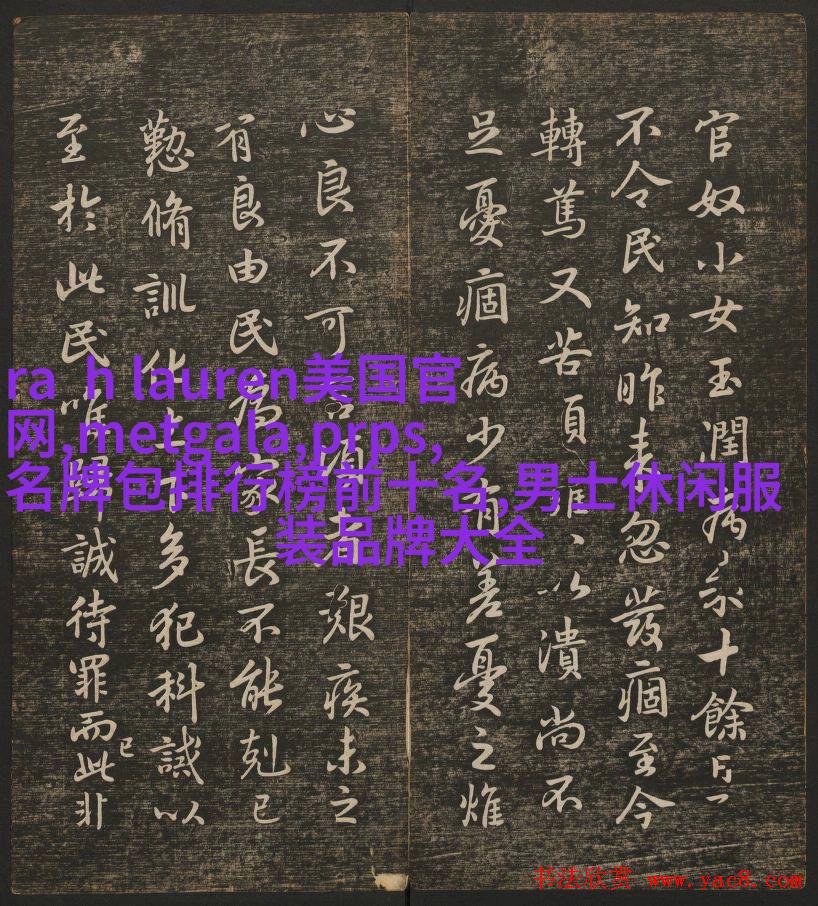 官奴小女玉潤病來十餘日了
不令民知昨來忽發痼至今
轉篤又苦頭以潰尚不
足憂痼病少有差憂之燋
心良不可言頃者艱疾未之
有良由民為家長不能剋己
懃脩訓化上下多犯科誡以
至於此民唯歸誠待罪而已此非
ra h lauren美国官
网,metgala,prps,
名牌包排行榜前十名,男士休闲服
装品牌大全
书法欣赏 www.yac8.com